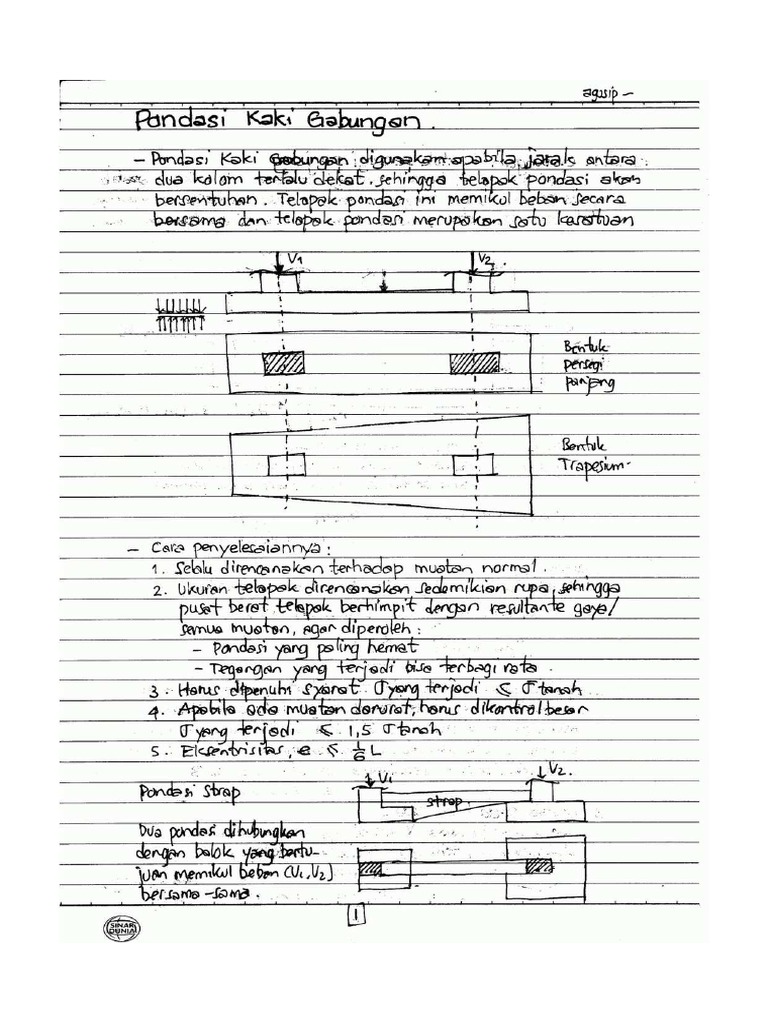 agusip -
Pondasi Kaki Gabungan.
- Pondasi Kaki Gabungan digunakan apabila jarak antara
dua kolom terlalu dekat, sehingga telapak pondasi akan
bersentuhan. Telapak pondasi ini memikul beban secara
bersama dan telapak pondasi merupakan satu kesatuan
V1
V2
Bentuk
persegi
panjang
Bentuk
Trapesium
- Cara penyelesaiannya :
1. Selalu direncanakan terhadap muatan normal.
2. Ukuran telapak direncanakan sedemikian rupa, sehingga
pusat berat telapak berhimpit dengan resultante gaya/
semua muatan, agar diperoleh :
- Pondasi yang paling hemat
- Tegangan yang terjadi bisa terbagi rata.
3. Harus dipenuhi syarat σ yang terjadi ≤ σ tanah
4. Apabila ada muatan darurat, harus dikontrol besar
σ yang terjadi ≤ 1,5 σ tanah
5. Eksentrisitas, e ≤ 1/6 L
Pondasi Strap
V1
V2.
strap
Dua pondasi dihubungkan
dengan balok yang bertu-
juan memikul beban (V1, V2)
bersama-sama.
1
SINAR
DUNIA